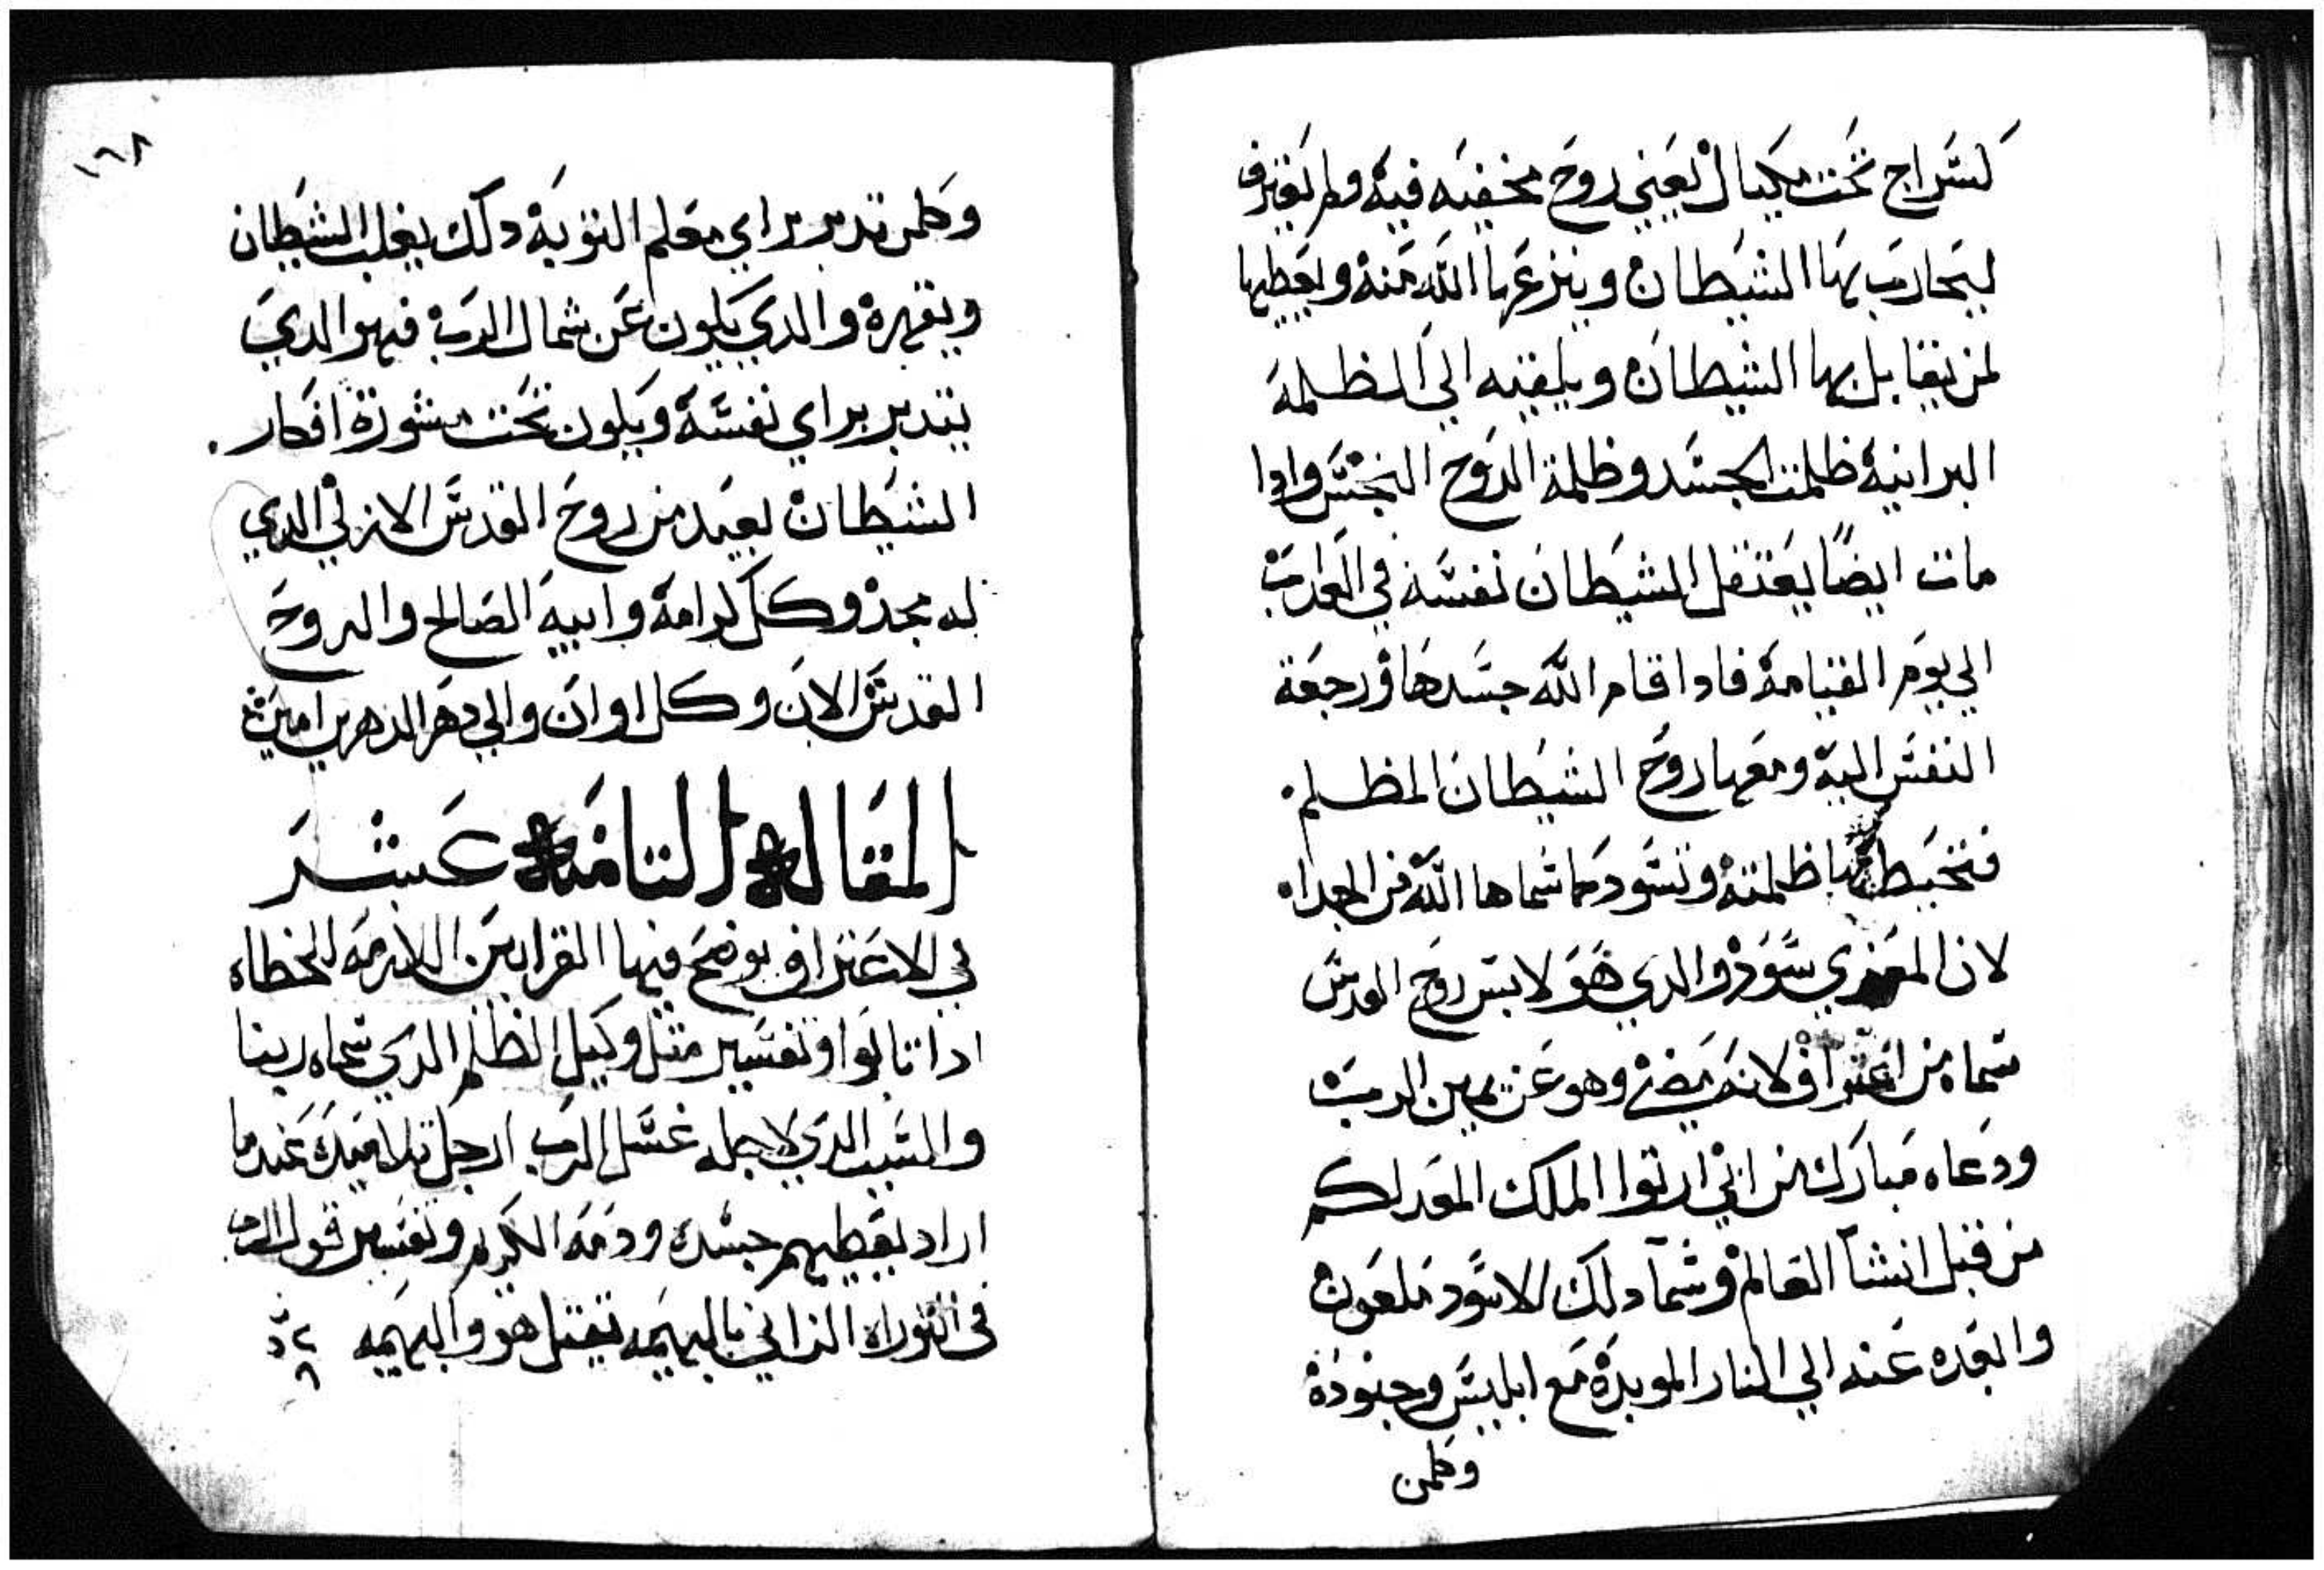 كسراج تحت مكيال يعني روح مخفيه فيه ولم يعترف
ليحارب بها الشيطان وينزعها الله منه ويعطيها
لمن يتقابل بها الشيطان ويلقيه الي الظلمه
البرانيه ظلمت الجسد وظلمة الروح النجس وادا
مات ايضًا يعتقل الشيطان نفسه في العداب
الي يوم القيامه فادا اقام الله جسدها ورجعة
النفس اليه ومعها روح الشيطان المظلم
فتحيط بها ظلمته وتسود كما سماها الله من الجداء
لان المعزي سود والدي هو لابس روح القدس
سماه من اعتراف لانه يضي وهو عن يمين الرب
ودعاه مبارك من ابي ارتوا الملك المعد لكم
من قبل انشآ العالم وسمآ دلك الاسود ملعون
وابعده عنه الي النار الموبدة مع ابليس وجنوده
وكلمن
١٦٨
وكلمن تدبر براي معلم التوبه دلك يغلب الشيطان
ويقهره والدي يكون عن شمال الرب فهو الدي
يتدبر براي نفسه ويكون تحت مشورة افكار
الشيطان بعيد من روح القدس الازلي الدي
له مجد وكل كرامه وابيه الصالح والروح
القدس الان وكل اوان والي دهر الدهرين امين
المقاله التامنه عشر
في الاعتراف يوضح فيها القرابين اللازمه للخطاه
ادا تابوا وتفسير مثل وكيل الظلم الدي سماه ربنا
والسبب الدي لاجله غسل الرب ارجل تلاميده عندما
اراد يعطيهم جسده ودمه الكريم وتفسير قول الرب
في التوراه الزاني بالبهيمه يقتل هو والبهيمه